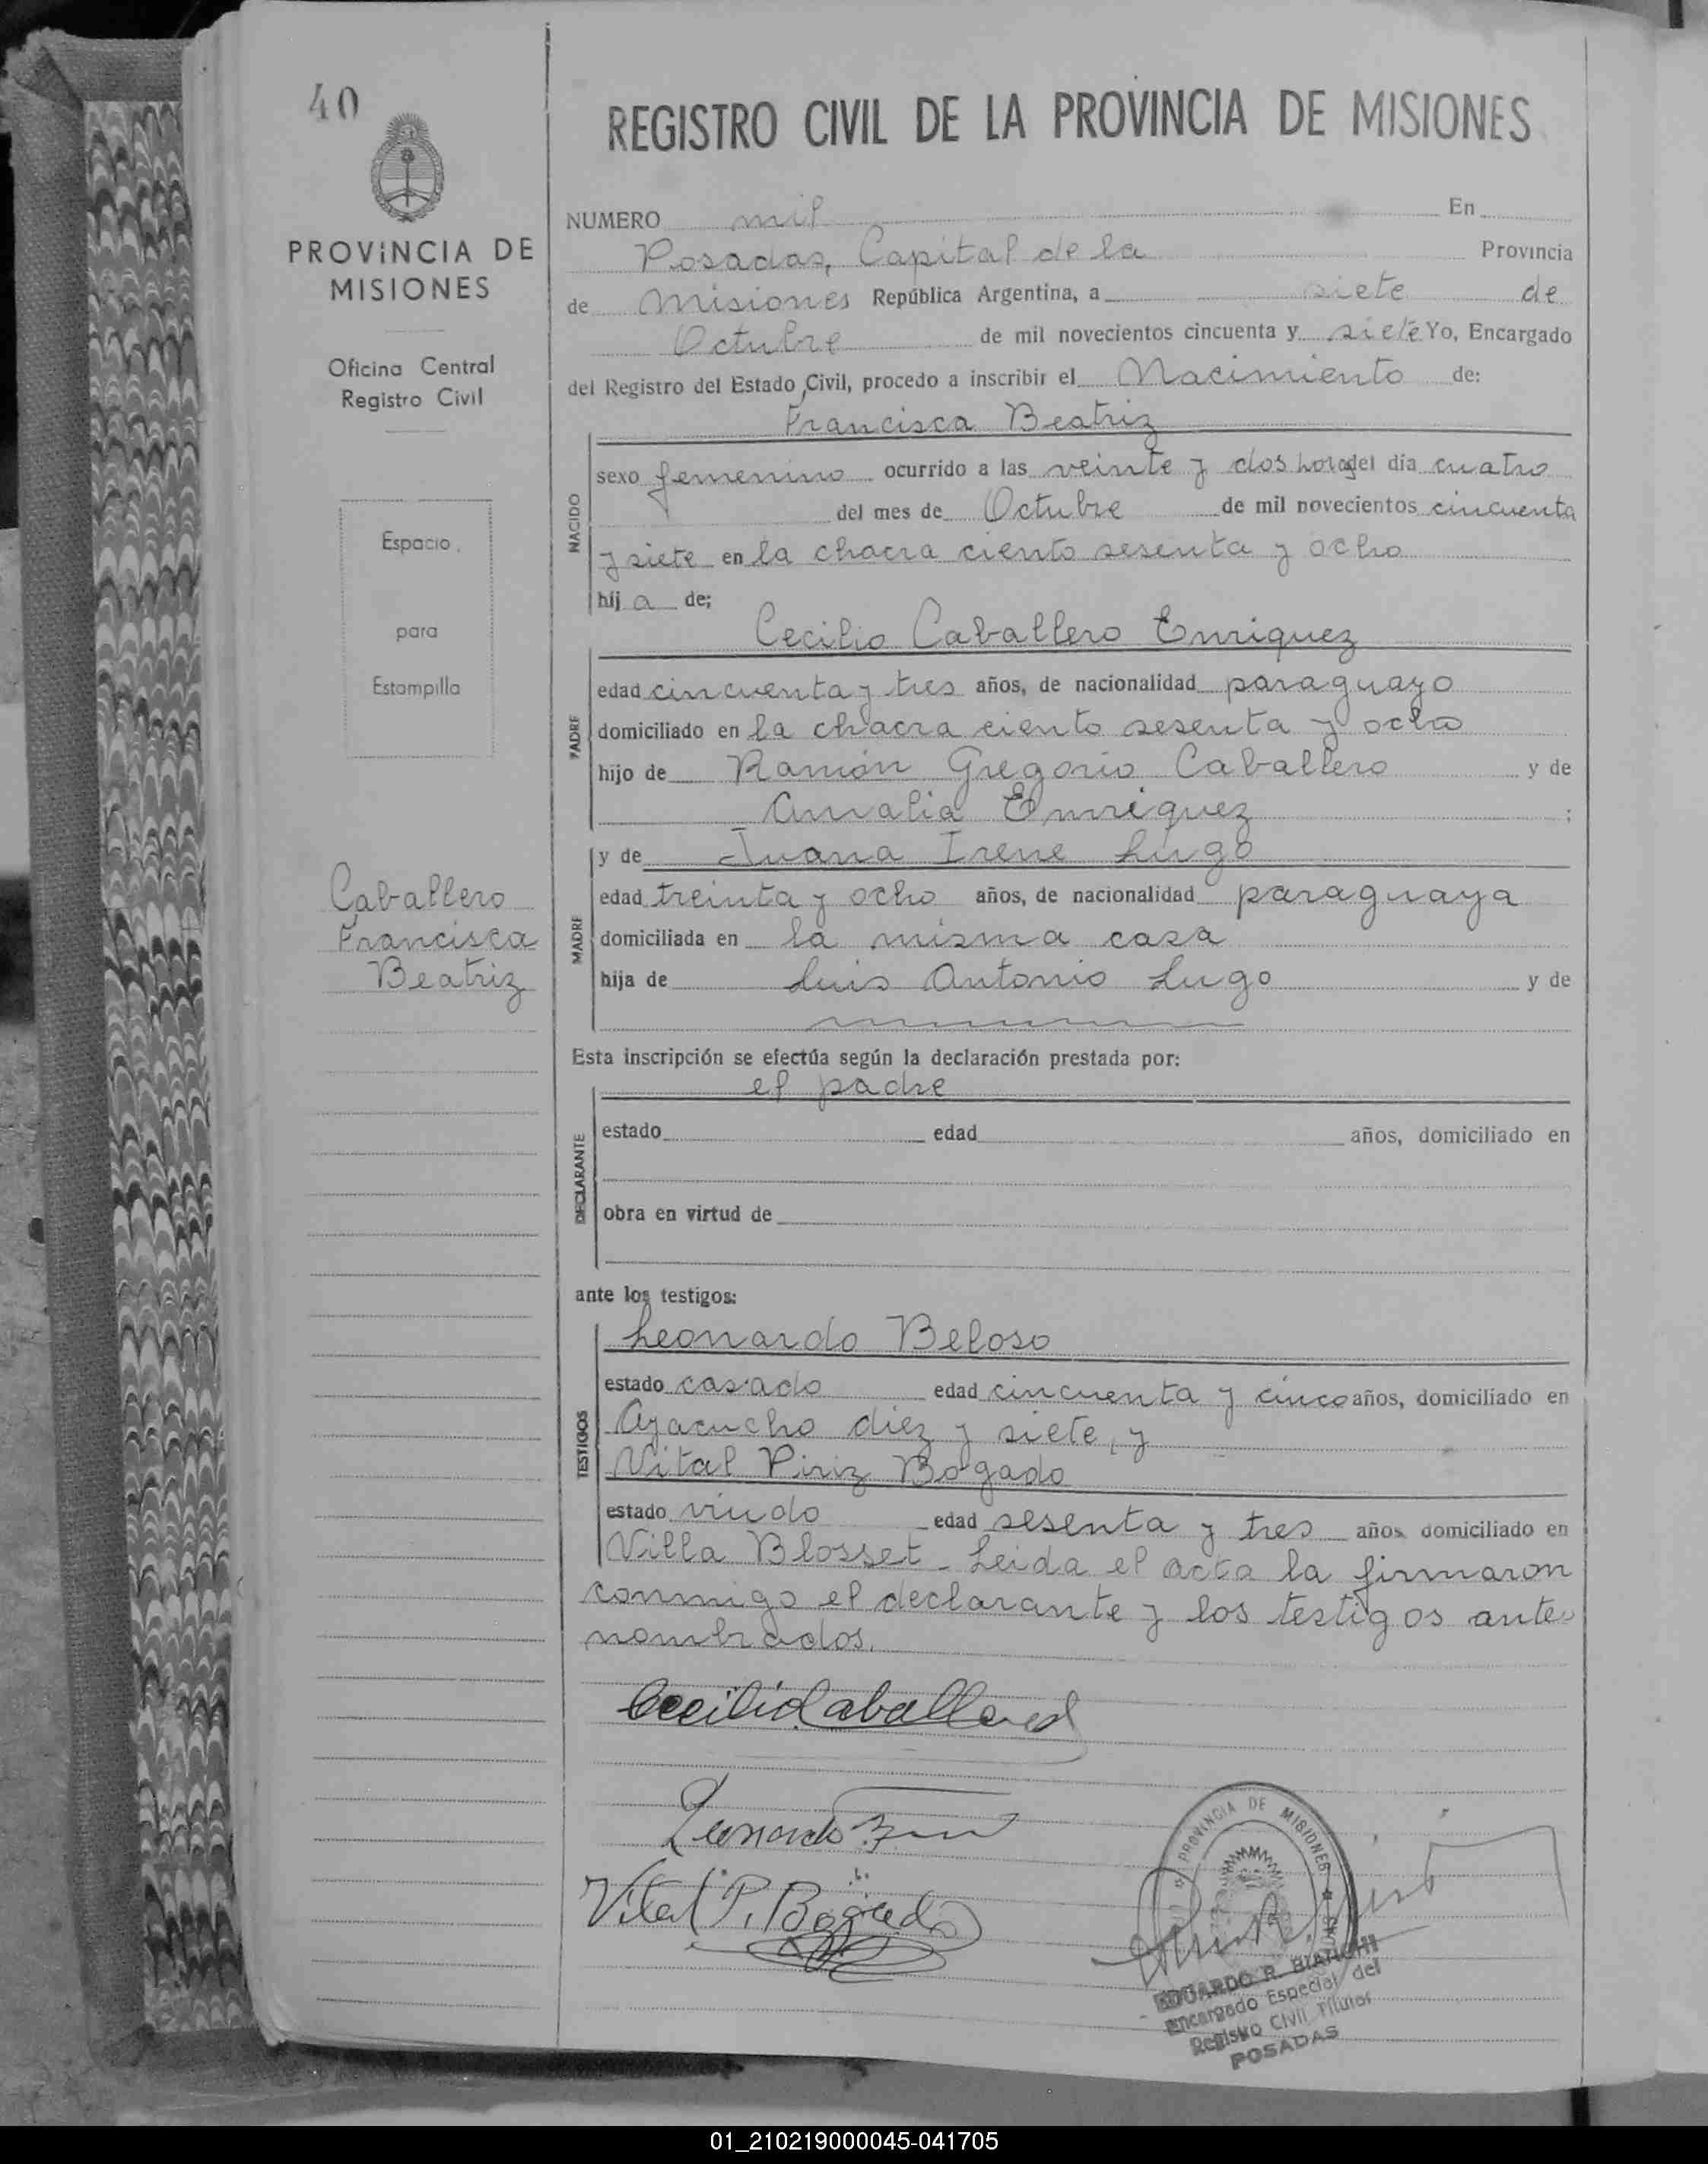 40
PROVINCIA DE
MISIONES
Oficina Central
Registro Civil
Espacio
para
Estampilla
Caballero
Francisca
Beatriz
REGISTRO CIVIL DE LA PROVINCIA DE MISIONES
NUMERO mil En
Posadas, Capital de la Provincia
de Misiones República Argentina, a siete de
Octubre de mil novecientos cincuenta y siete Yo, Encargado
del Registro del Estado Civil, procedo a inscribir el Nacimiento de:
Francisca Beatriz
NACIDO
sexo femenino ocurrido a las veinte y dos horas del día cuatro
del mes de Octubre de mil novecientos cincuenta
y siete en la chacra ciento sesenta y ocho
hij a de;
Cecilio Caballero Enriquez
PADRE
edad cincuenta y tres años, de nacionalidad paraguayo
domiciliado en la chacra ciento sesenta y ocho
hijo de Ramón Gregorio Caballero y de
Amalia Enriquez ;
y de Juana Irene Lugo
MADRE
edad treinta y ocho años, de nacionalidad paraguaya
domiciliada en la misma casa
hija de Luis Antonio Lugo y de
Esta inscripción se efectúa según la declaración prestada por:
el padre
DECLARANTE
estado edad años, domiciliado en
obra en virtud de
ante los testigos:
Leonardo Beloso
TESTIGOS
estado casado edad cincuenta y cinco años, domiciliado en
Ayacucho diez y siete, y
Vital Piriz Bogado
estado viudo edad sesenta y tres años domiciliado en
Villa Blosset - Leida el acta la firmaron
conmigo el declarante y los testigos ante
nombrados.
Cecilio Caballero
Leonardo
Vital P. Bogado
PROVINCIA DE MISIONES
EDUARDO R. BIANCHI
Encargado Especial del
Registro Civil Titular
POSADAS
01_210219000045-041705